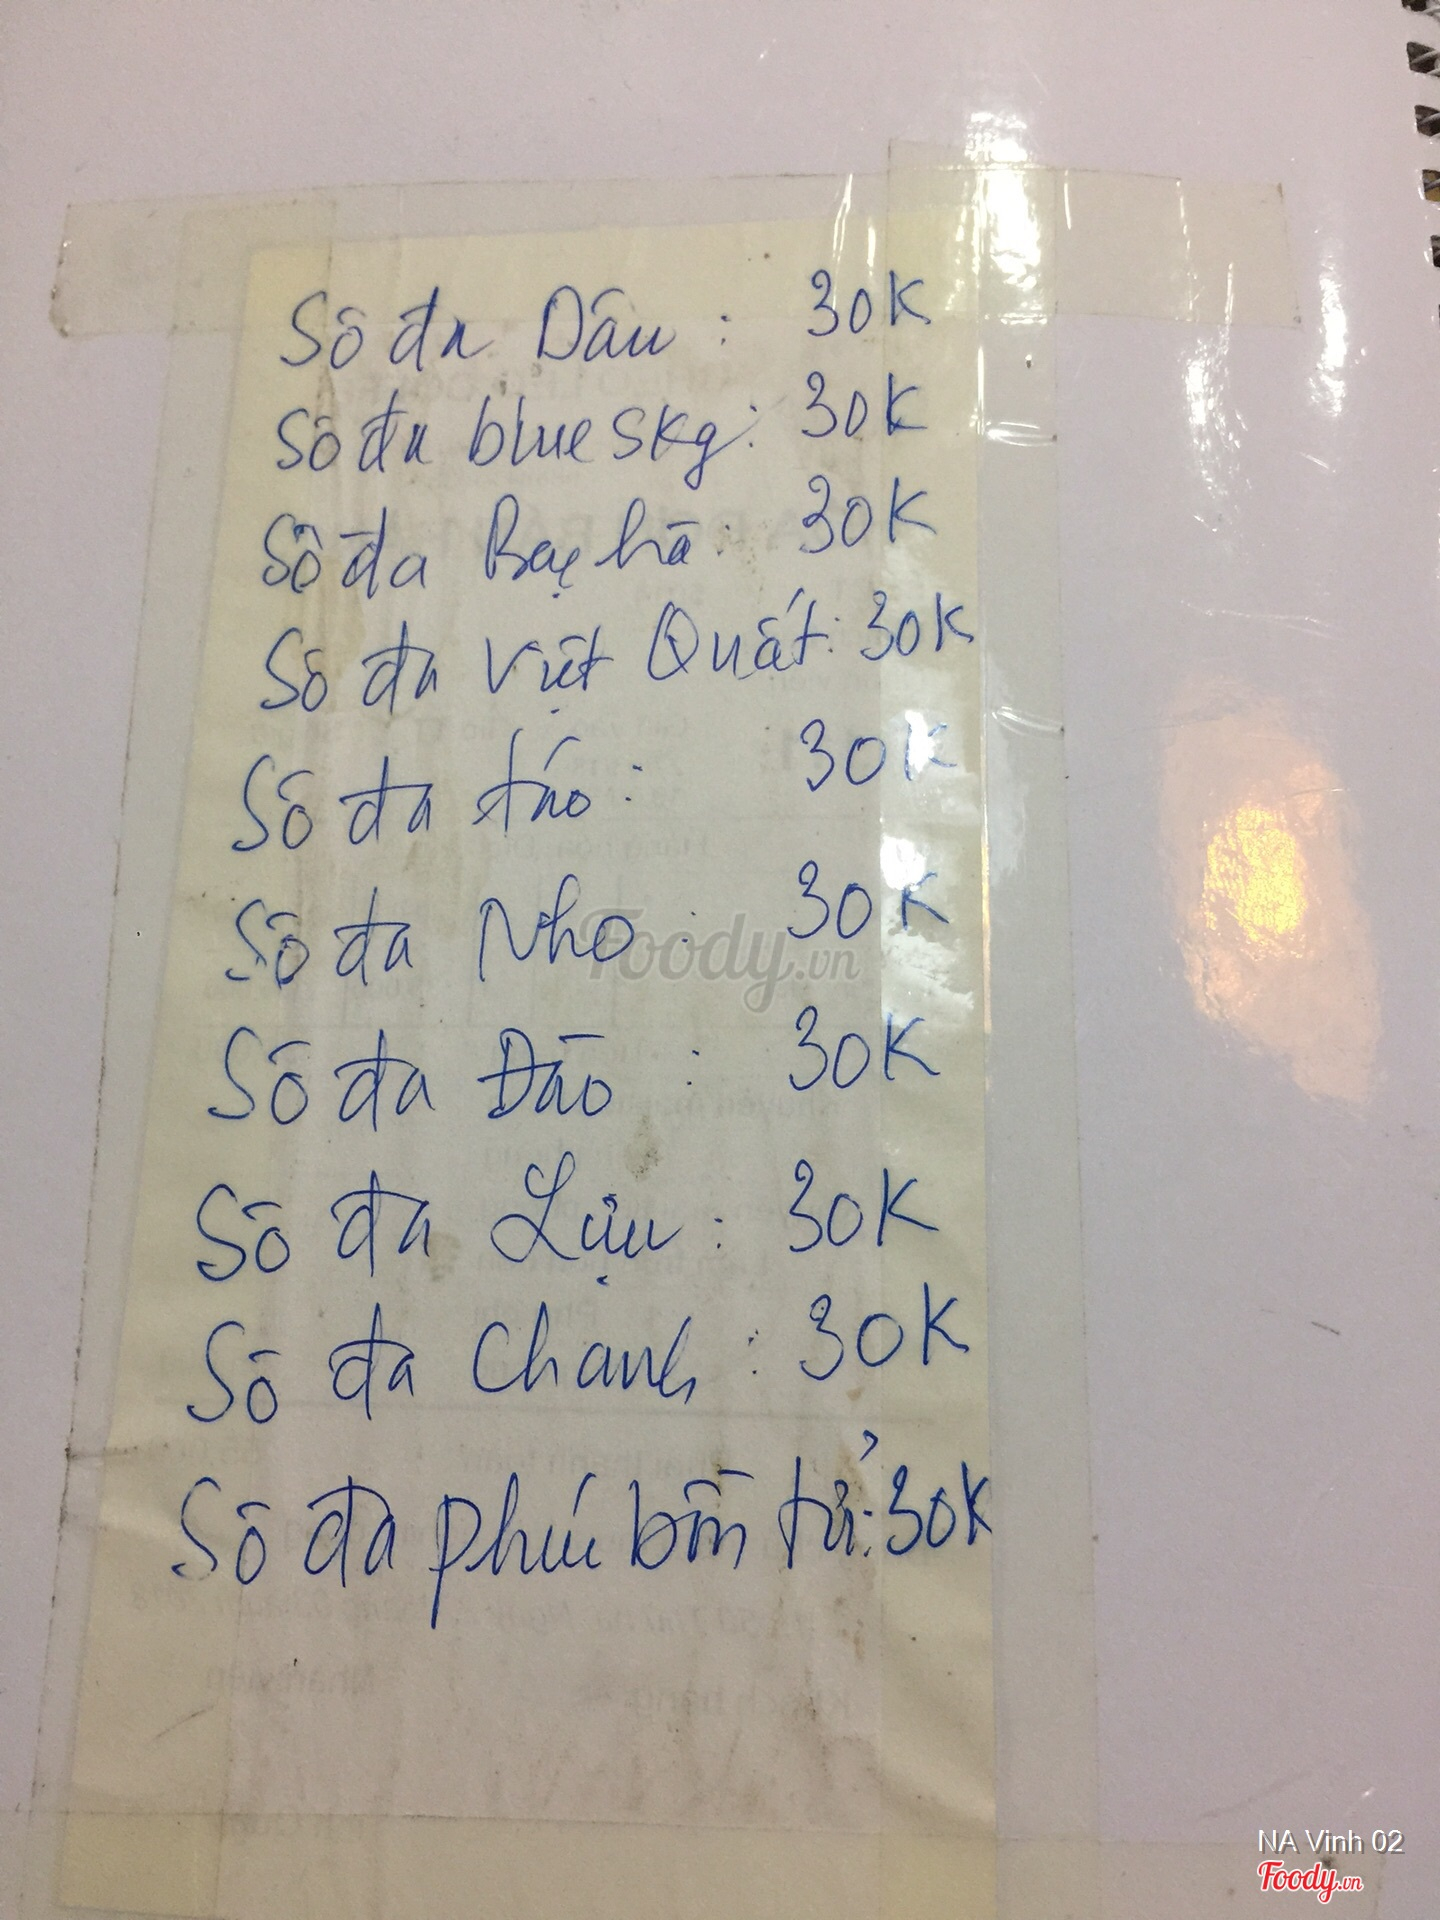 Sô đa Dâu : 30K
Sô đa blue sky : 30K
Sô đa Bạc hà : 30K
Sô đa Việt Quất : 30K
Sô đa táo : 30K
Sô đa Nho : 30K
Foody.vn
Sô đa Đào : 30K
Sô đa Lựu : 30K
Sô đa Chanh : 30K
Sô đa phúc bồn tử : 30K
NA Vinh 02
Foody.vn